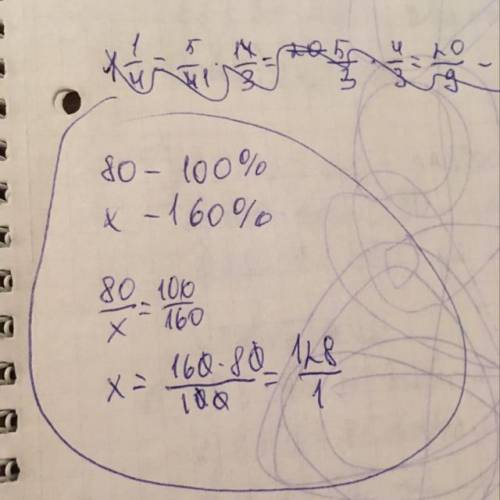 x 1/4 = 5/4 · 14/3 = 5/3 · 4/3 = 20/9 -
80 - 100%
x - 160%
80/x = 100/160
x = 160·80/100 = 128/1